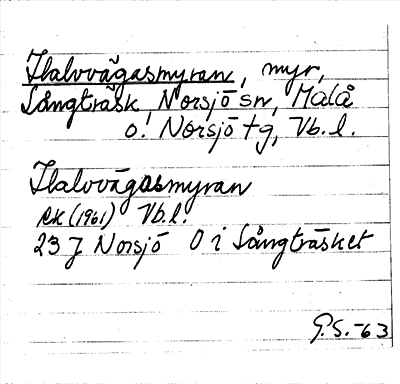 Halvvägasmyran, myr,
Långträsk, Norsjö sn, Malå
o. Norsjö tg, Vb. l.
Halvvägasmyran
RK (1961) Vb. l.
23 J Norsjö O i Långträsket
G. S. -63